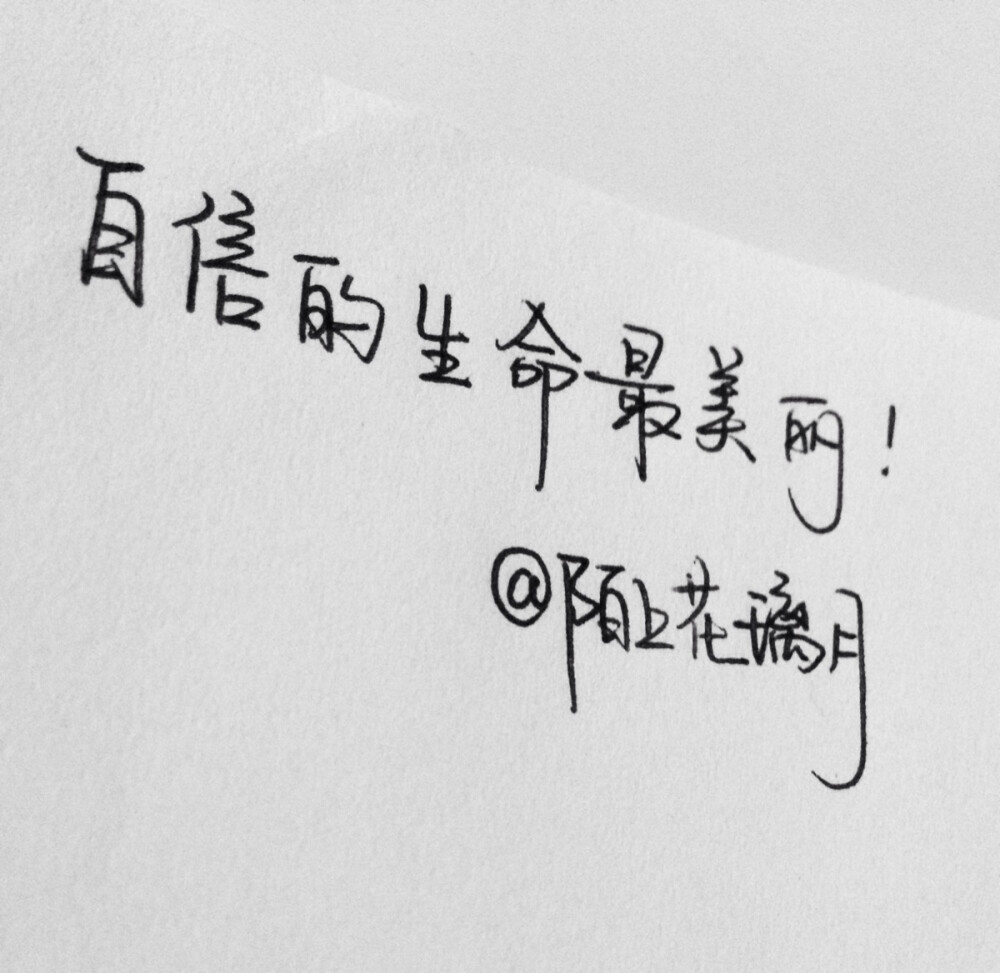 自信的生命最美丽!
@陌上花璃月